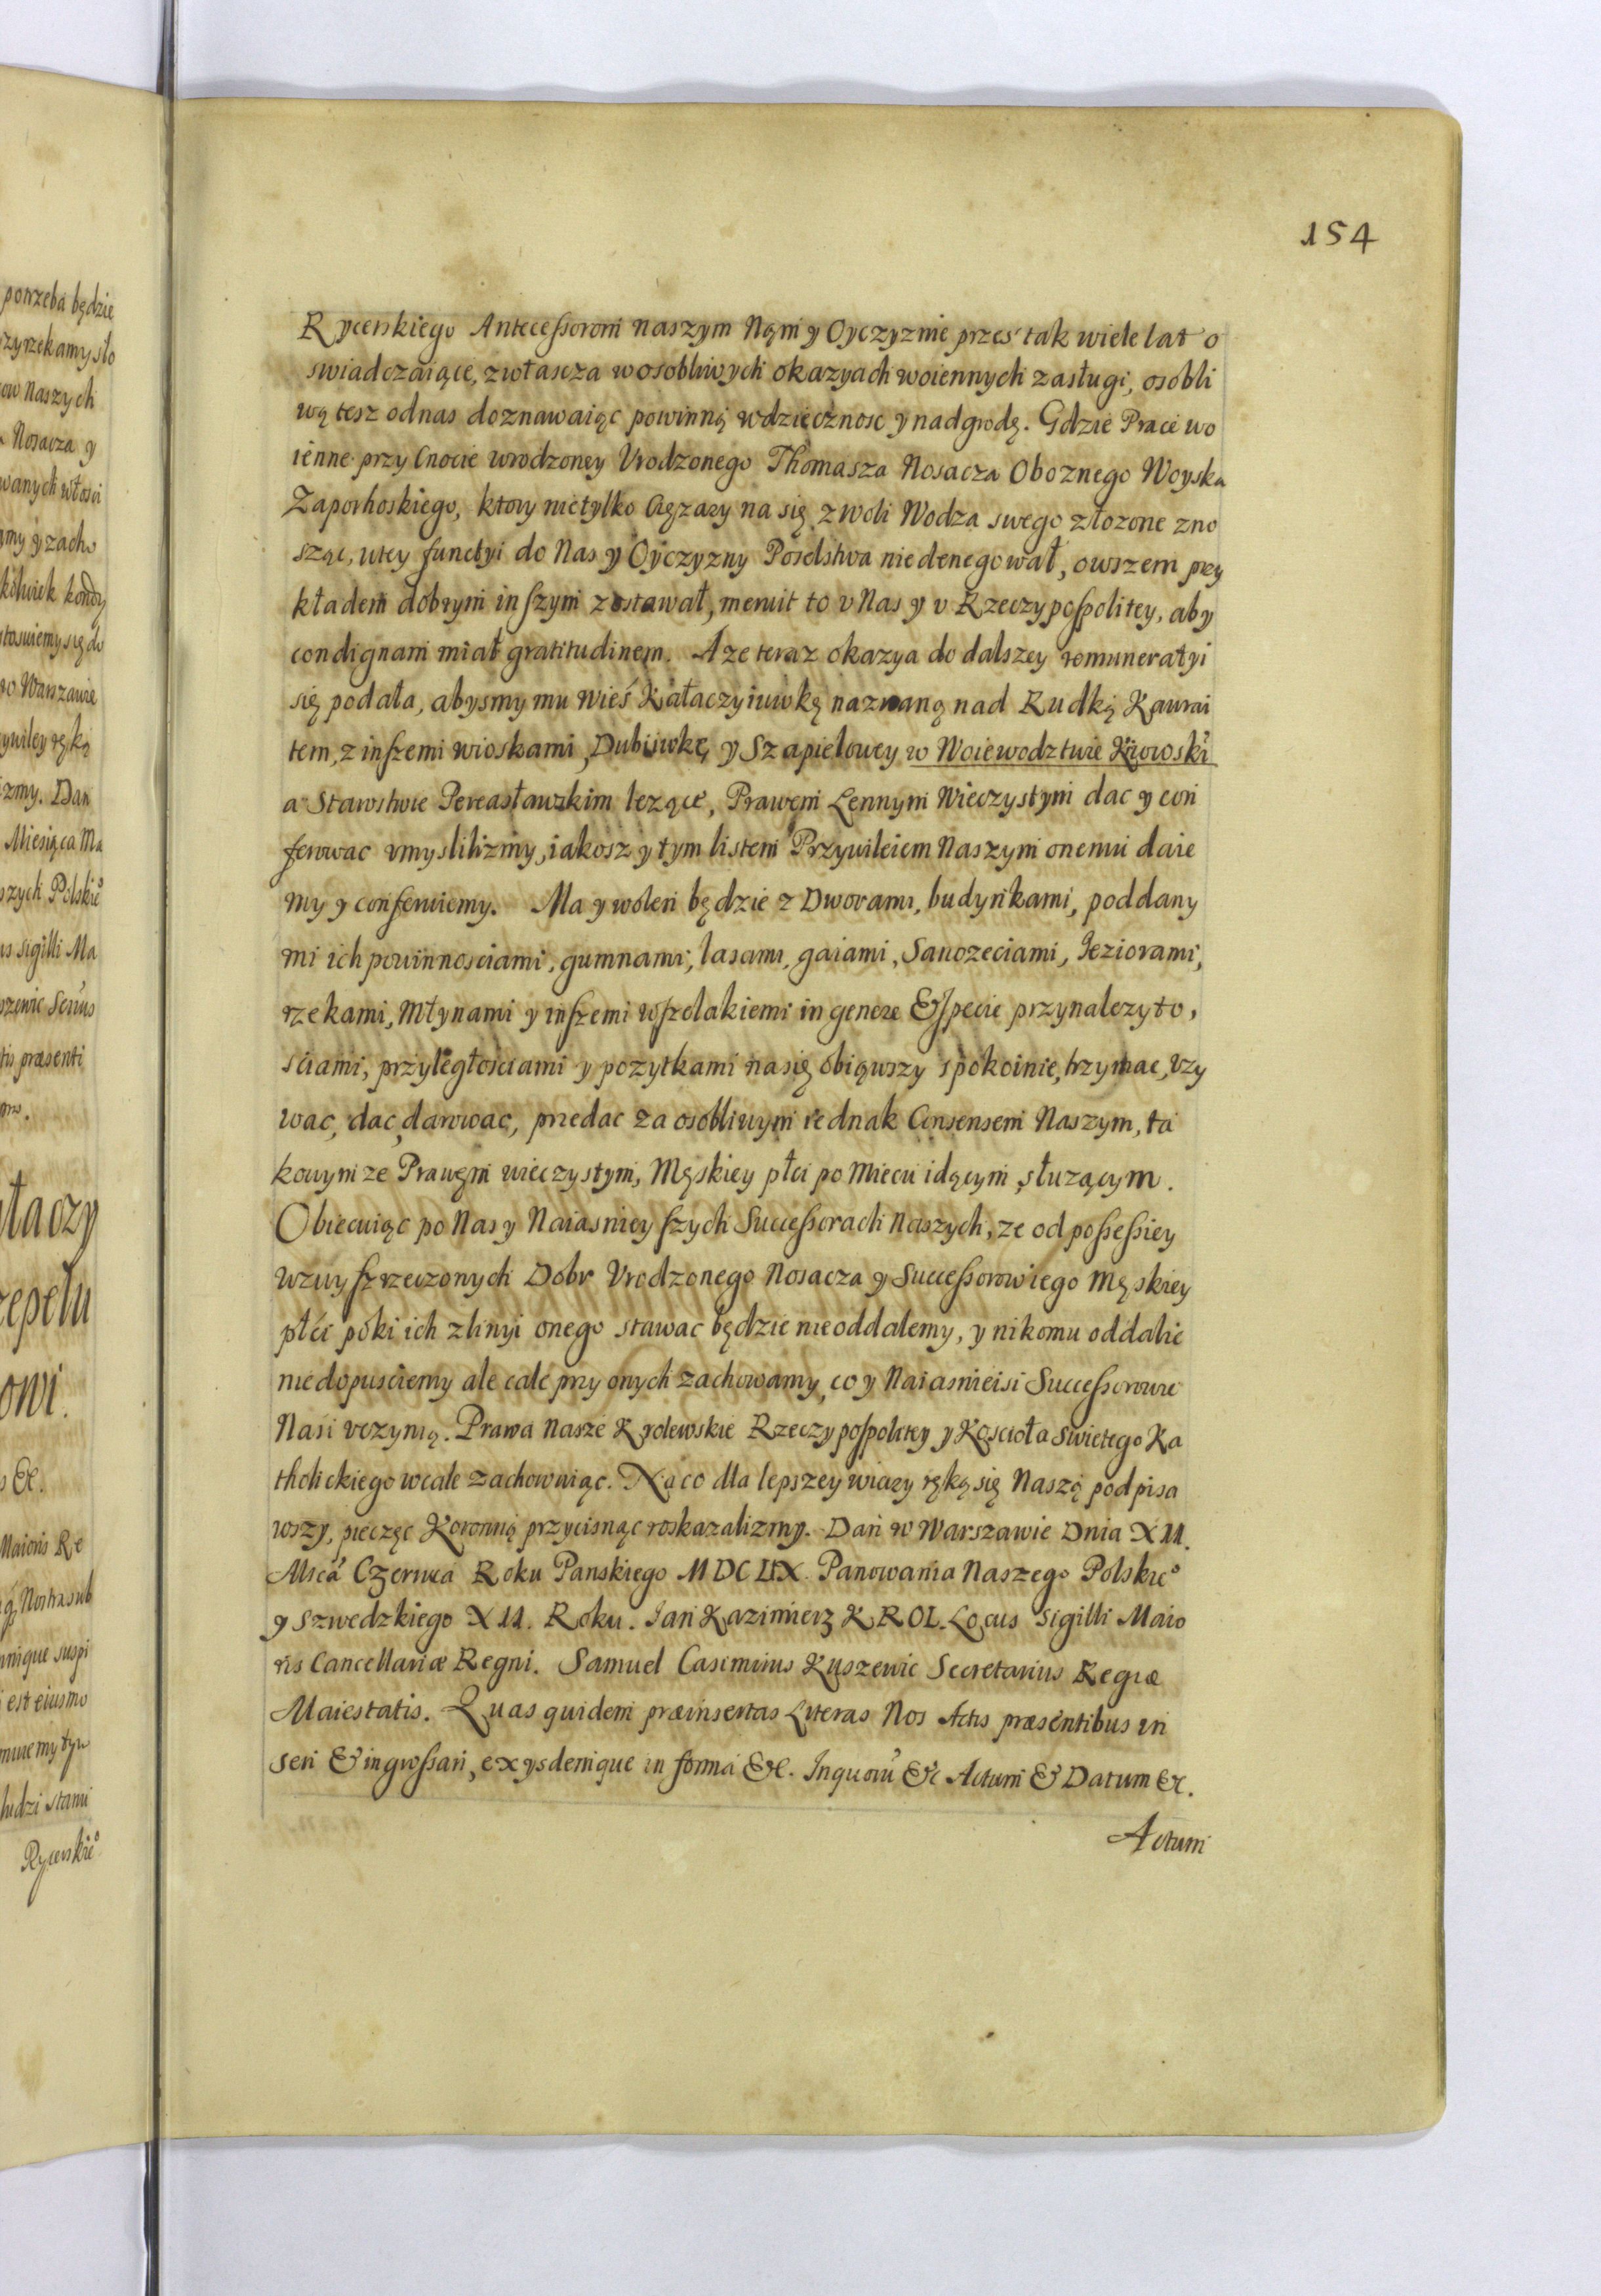 potrzeba będzie
zyrzekamy sło
ow Naszych
Nosacza y
wanych włosci
my y zacho
kolwiek
tosuiemy się do
Warszawie
ywiley ręką
izmy. Dan
Miesiąca Ma
szych Polskie°
us sigilli Ma
szewic Secrius
tis præsenti
łaczy
zepelu
owi.
&c.
Maioris Re
Nostra sub
nnique suspi
est eiusmo
muiemy tyn
ludzi stanu
Rycerskie°
154
Rycerskiego Antecessorom naszym Nąm y Oyczyznie przes tak wiele lat o
swiadczaiące, zwłascza w osobliwych okazyach woiennych zasługi, osobli
wą tesz od nas doznawaiąc powinną wdzięcznosc y nadgrodę. Gdzie Prace wo
ienne przy Cnocie wrodzoney Vrodzonego Thomasza Nosacza Oboznego Woyska
Zaporhoskiego, ktory nietylko Cięzary na się z woli Wodza swego złozone zno
sząc, wtey functyi do Nas y Oyczyzny Poselstwa niedenegował, owszem przy
kładem dobrym inszym zostawał, meruit to v Nas y v Rzeczypospolitey, aby
condignam miał gratitudinem. A ze teraz okazya do dalszey remuneratyi
się podała, abysmy mu wieś Kałaczyiuwkę nazwaną nad Rudką Kawrai
tem, z inszemi wioskami, Dubiiwkę y Szapielowey w Woiewodztwie Kiiowoski
a Starostwie Pereasławskim lezące, Prawem Lennym Wieczystym dac y con
ferowac vmyslilizmy, iakosz y tym listem Przywileiem Naszym onemu daie
my y conferuiemy. Ma y wolen będzie z Dworami, budynkami, poddany
mi ich powinnosciami, gumnami, lasami, gaiami, Sanozeciami, Jeziorami,
rzekami, Młynami y inszemi wszelakiemi in genere & specie przynalezyto,
sciami, przyległosciami y pozytkami na się obiąwszy spokoinie, trzymac, vzy
wac, dac, darowac, przedac za osobliwym iednak Consensem Naszym, ta
kowymze Prawęm wieczystym, Męskiey płci po Mieczu idącym słuzącym.
Obiecuiąc po Nas y Naiasnieyszych Successorach Naszych, ze od possessiey
wzwyszrzeczonych Dobr Vrodzonego Nosacza y Successorow iego Męskiey
płci poki ich z linyi onego stawac będzie nieoddalemy, y nikomu oddalic
niedopusciemy ale cale przy onych zachowamy, co y Naiasnieisi Successorowie
Nasi vczynią. Prawa Nasze Krolewskie Rzeczypospolitey y Kosciola Swietego Ka
tholickiego wcale zachowuiąc. Na co dla lepszey wiary ręką się Naszą podpisa
wszy, pieczęc Koronną przycisnąc roskazalizmy. Dan w Warszawie Dnia XII.
Mieâ Czerwca Roku Panskiego MDCLIX. Panowania Naszego Polskie°
y Szwedzkiego XII. Roku. Jan Kazimierz KROL. Locus Sigilli Maio
ris Cancellariæ Regni. Samuel Casimirus Kuszewic Secretarius Regiæ
Maiestatis. Quas quidem præinsertas Literas Nos Actis præsentibus in
seri & ingrossari, exysdemque in formâ &c. In quorû &c Actum & Datum &c.
Actum